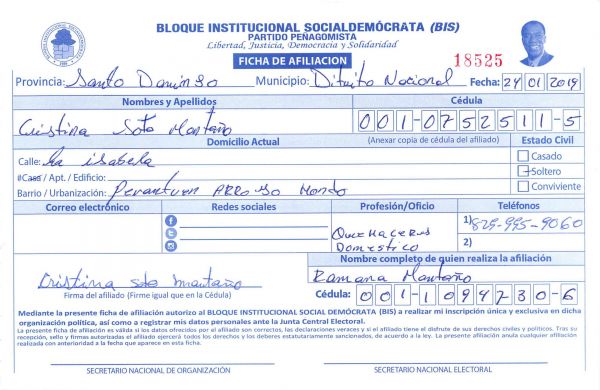 BLOQUE INSTITUCIONAL SOCIALDEMÓCRATA (BIS)
PARTIDO PEÑAGOMISTA
Libertad, Justicia, Democracia y Solidaridad
FICHA DE AFILIACION 18525
Provincia: Santo Domingo Municipio: Distrito Nacional Fecha: 24 01 2019
Nombres y Apellidos Cédula
Cristina Soto Montaño 001-0752511-5
Domicilio Actual (Anexar copia de cédula del afiliado) Estado Civil
Calle: la isabela Casado
#Casa / Apt. / Edificio: Soltero
Barrio / Urbanización: ARROYO Hondo Conviviente
Correo electrónico Redes sociales Profesión/Oficio Teléfonos
1) 829-995-9060
QueHaceres
Domestico 2)
Nombre completo de quien realiza la afiliación
Cristina soto montaño Ramana Montaño
Firma del afiliado (Firme igual que en la Cédula) Cédula: 001-1094230-6
Mediante la presente ficha de afiliación autorizo al BLOQUE INSTITUCIONAL SOCIAL DEMÓCRATA (BIS) a realizar mi inscripción única y exclusiva en dicha
organización política, así como a registrar mis datos personales ante la Junta Central Electoral.
La presente ficha de afiliación es válida si los datos ofrecidos por el afiliado son correctos, las declaraciones veraces y si el afiliado tiene el disfrute de sus derechos civiles y políticos. Tras su
recepción, sello y firmas autorizadas el afiliado ejercerá todos los derechos y los deberes estatutariamente sancionados, de acuerdo a la ley. La presente afiliación anula cualquier afiliación
realizada con anterioridad a la fecha que aparece en esta ficha.
SECRETARIO NACIONAL DE ORGANIZACIÓN SECRETARIO NACIONAL ELECTORAL